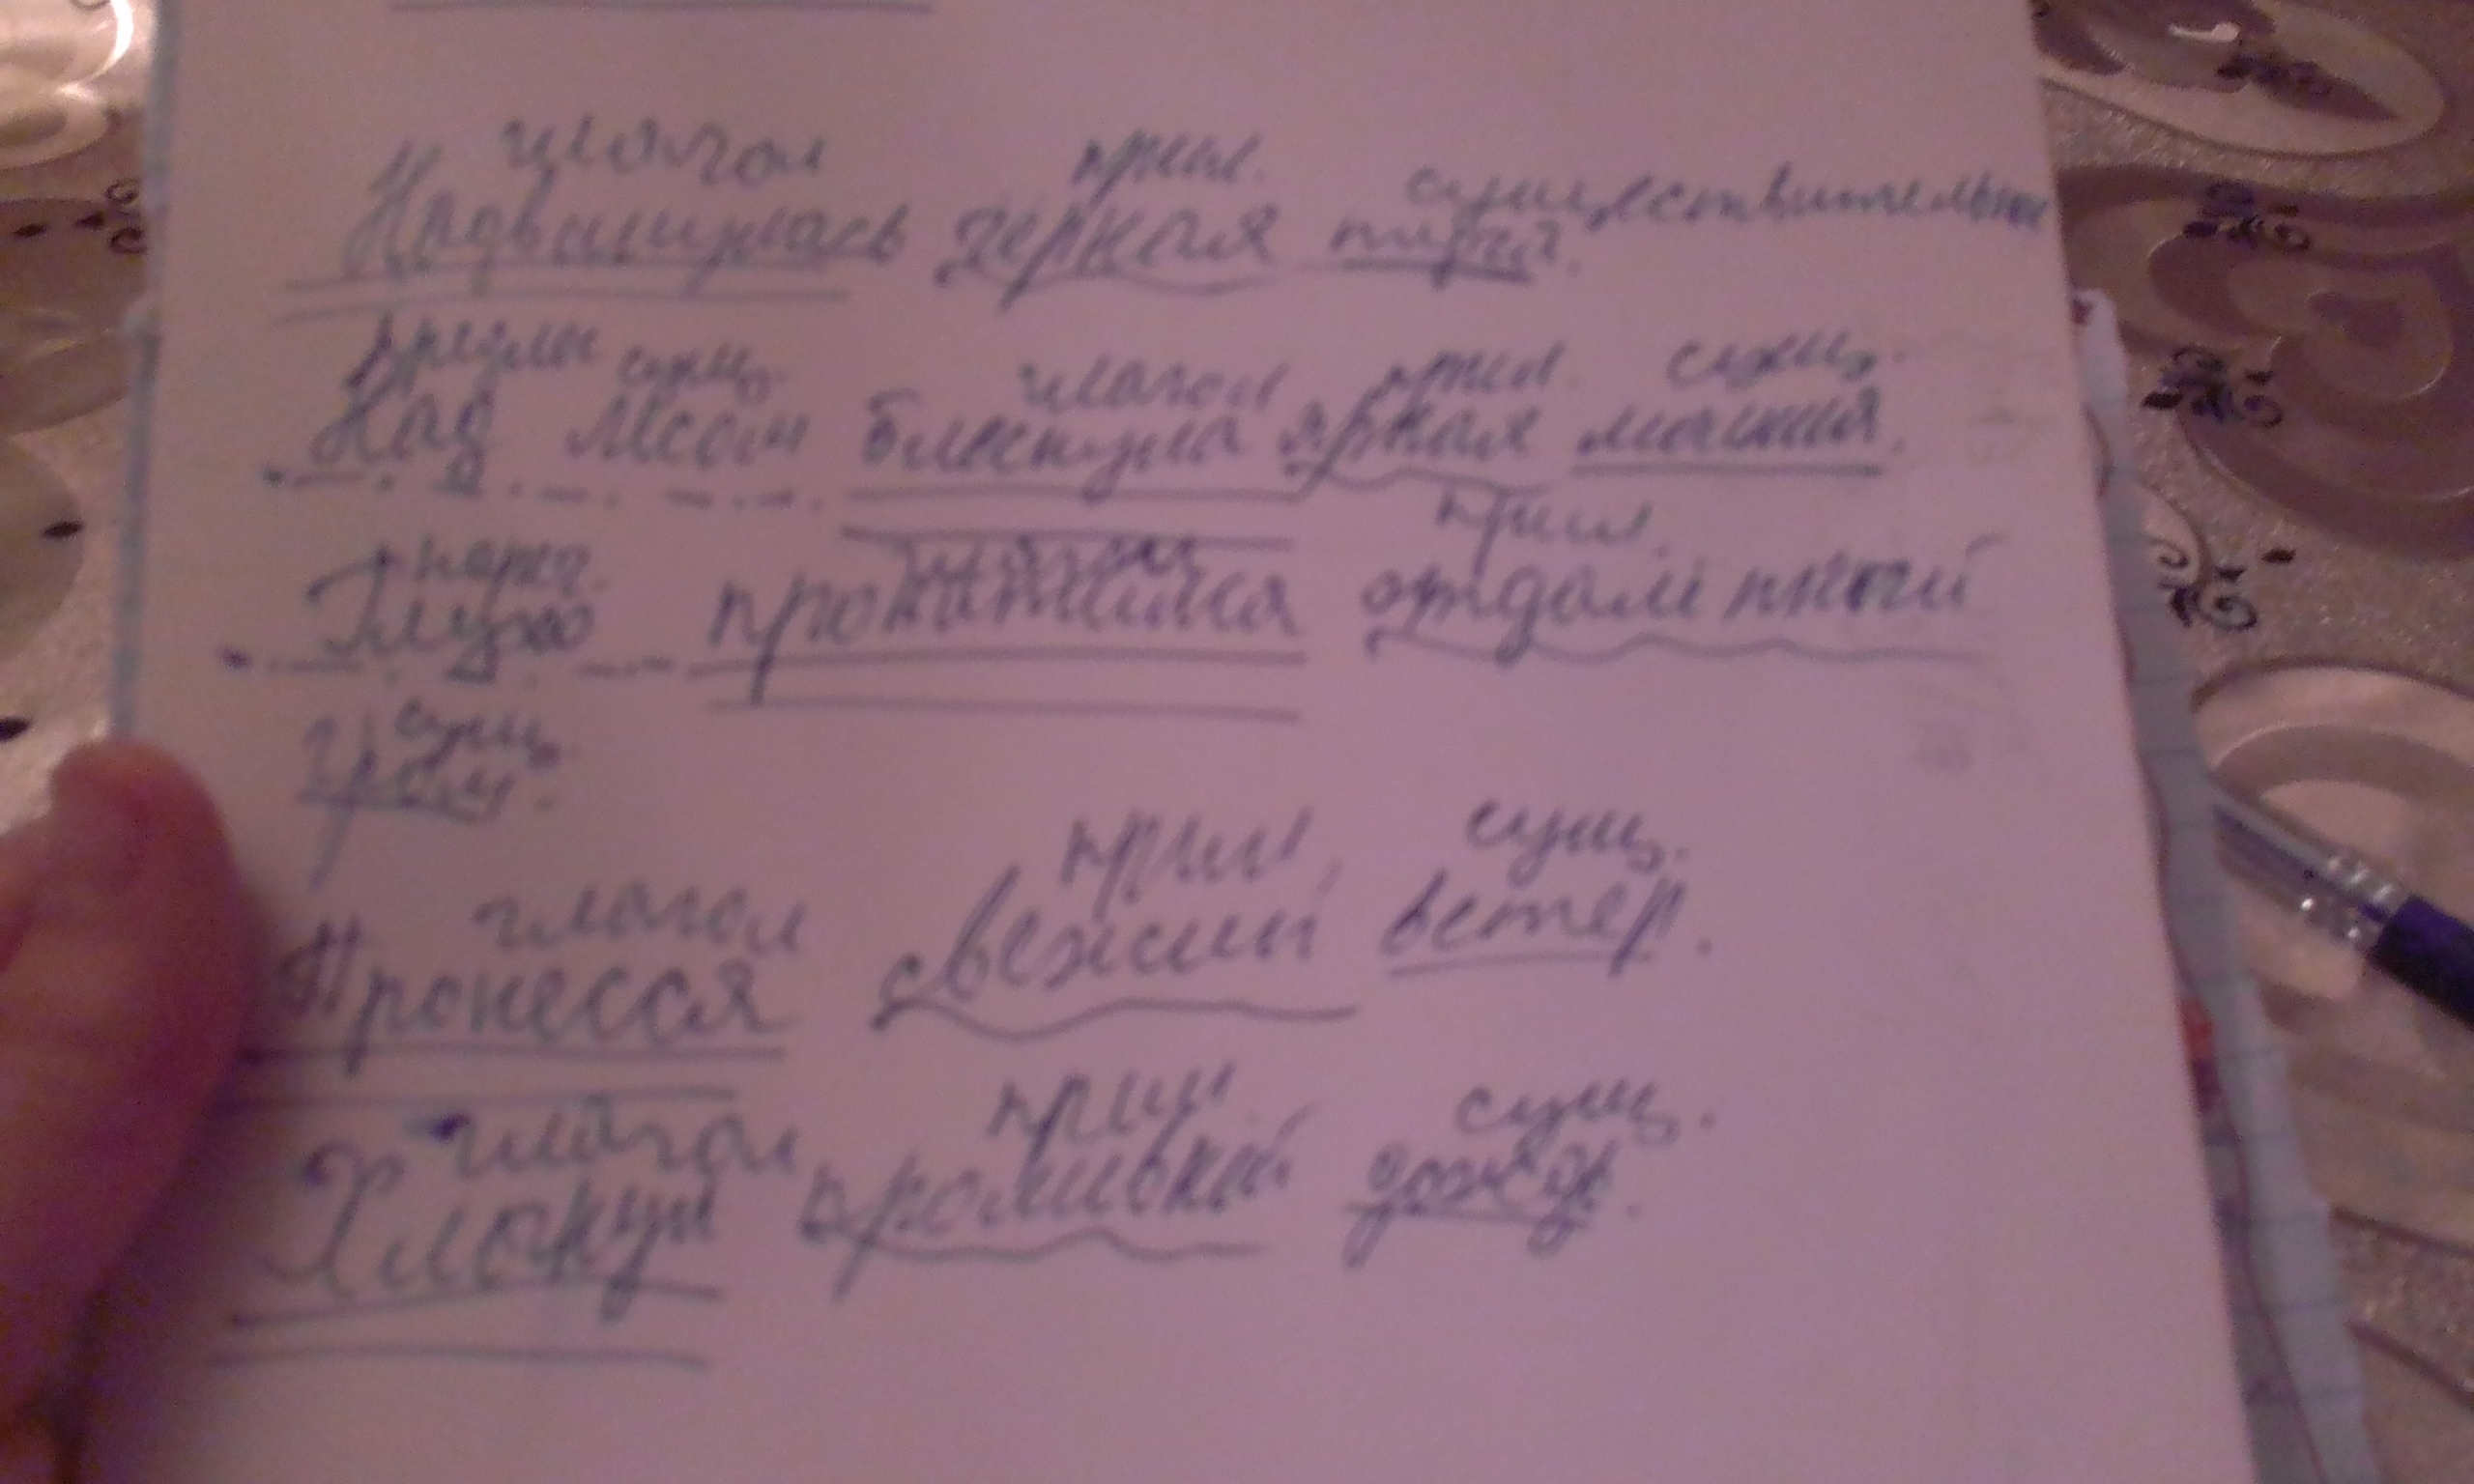 глагол прил. существительное
Надвинулась черная туча.
предлог сущ. глагол прил. сущ.
Над лесом блеснула яркая молния.
нареч. глагол прил.
Глухо прокатился отдаленный
сущ.
гром.
глагол прил. сущ.
Пронесся свежий ветер.
глагол прил. сущ.
Хлынул проливной дождь.